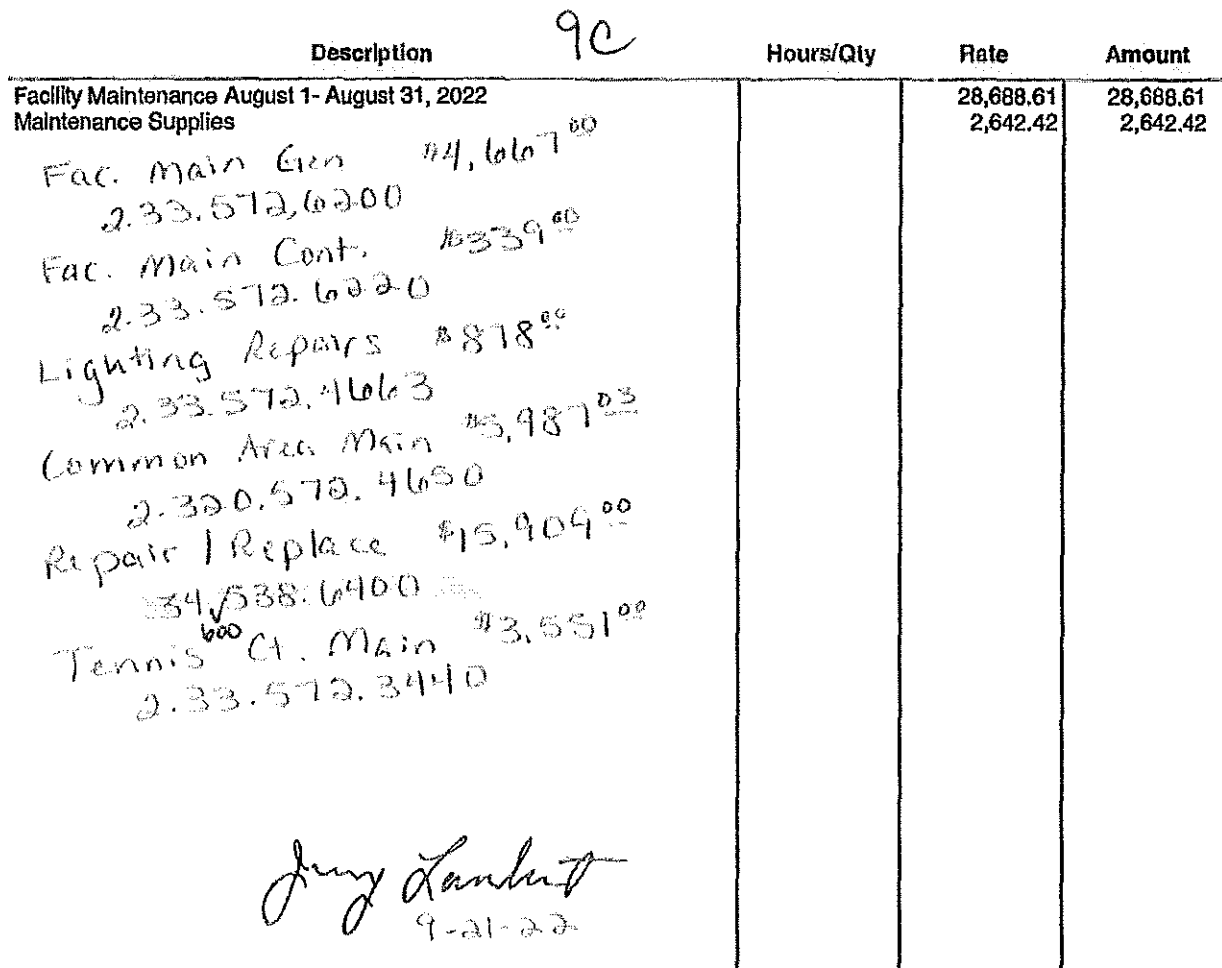 9C
Description Hours/Qty Rate Amount
Facility Maintenance August 1- August 31, 2022 28,688.61 28,688.61
Maintenance Supplies 2,642.42 2,642.42
Fac. Main Gen $4,667.00
2.33.572.6200
Fac. Main Cont. $339.00
2.33.572.6220
Lighting Repairs $878.00
2.33.572.4663
Common Area Main $5,987.03
2.320.572.4650
Repair / Replace $15,909.00
34.600.538.6400
Tennis Ct. Main $3,551.00
2.33.572.3440
Jerry Lambert
9-21-22